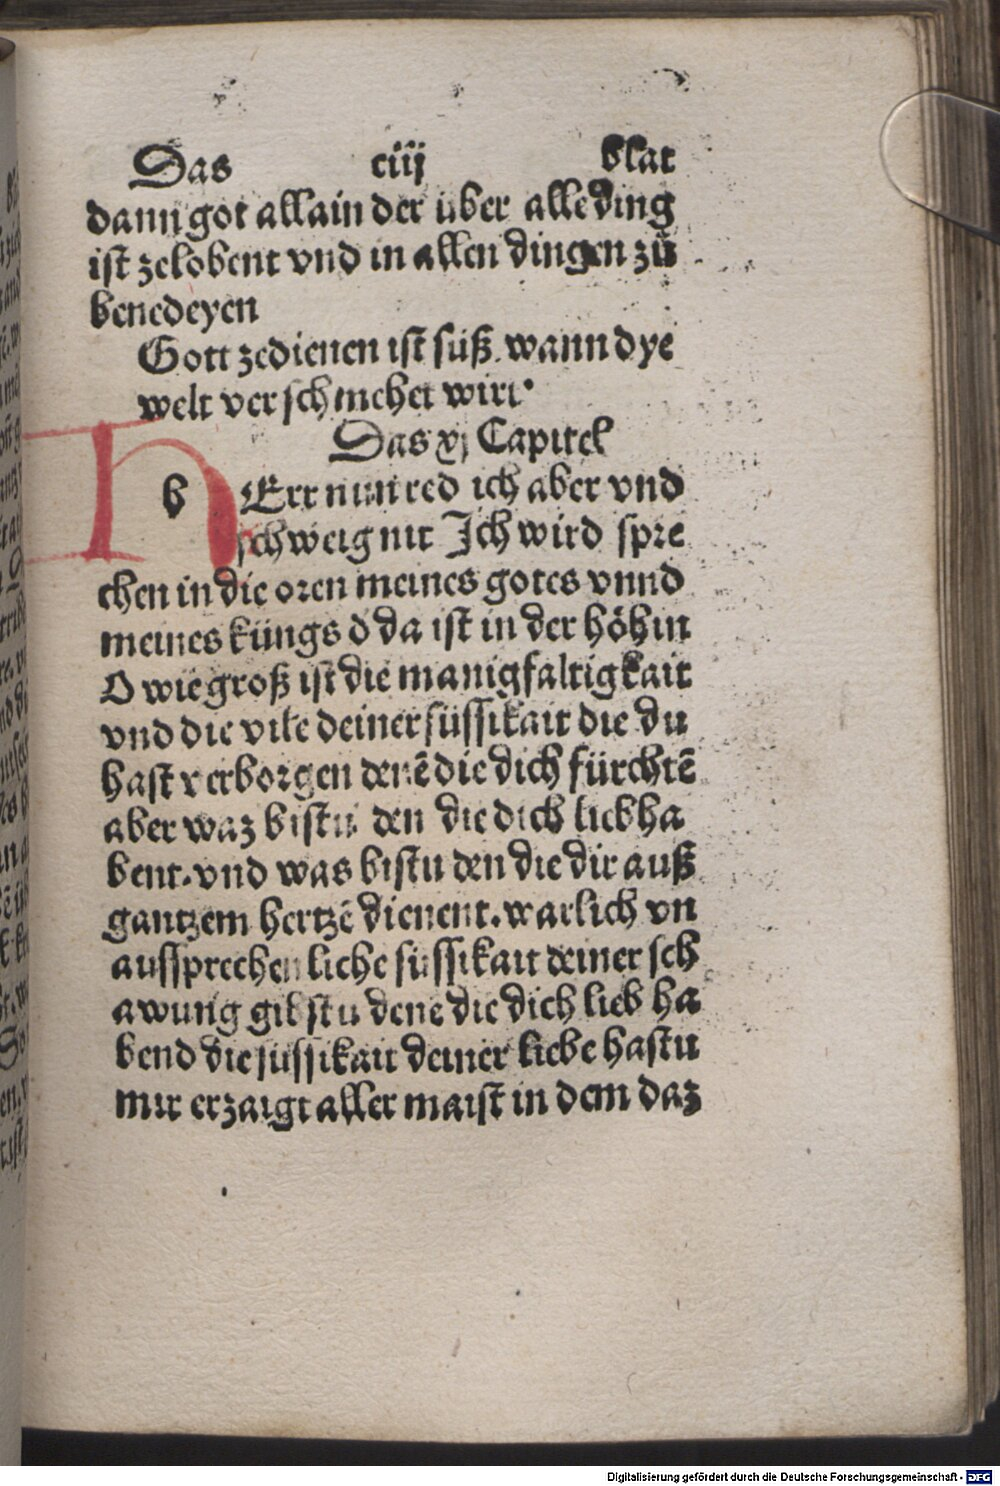 Das ciij blat
dann got allain der über alle ding
ist zelobent vnd in allen dingen zů
benedeyen
Gott zedienen ist süß wann dye
welt verschmehet wirt.
Das xj Capitel
h Err nun red ich aber vnd
schweig nit Ich wird spre
chen in die oren meines gotes vnnd
meines küngs d̄ da ist in der höhin
O wie groß ist die manigfaltigkait
vnd die vile deiner süssikait die du
hast verborgen denē die dich fürchtē
aber waz bistu den die dich liebha
bent. vnd was bistu den die dir auß
gantzem hertzē dienent. warlich vn
aussprechenliche süssikait deiner sch
awung gibstu dene die dich lieb ha
bend die süssikait deiner liebe hastu
mir erzaigt aller maist in dem daz
Digitalisierung gefördert durch die Deutsche Forschungsgemeinschaft - DFG